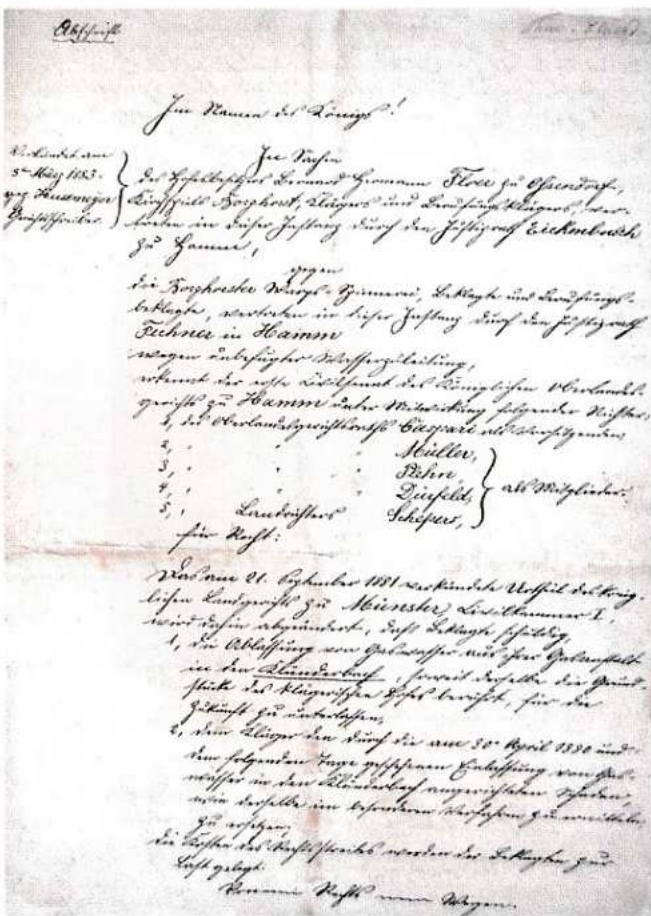 Abschrift
Im Namen des Königs!
Verkündet am
5ten März 1883.
gez.
Gerichtsschreiber.
In Sachen
des Hofesbesitzers Bernard Hermann Floer zu Ostendorf,
Kirchspiels Borghorst, Klägers und Berufungsklägers, ver-
treten in dieser Instanz durch den Justizrath Eickenbusch
zu Hamm,
gegen
die Borghorster Warps-Spinnerei, Beklagte und Berufungs-
beklagte, vertreten in dieser Instanz durch den Justizrath
Fechner in Hamm
wegen unbefugter Wasserzuleitung,
erkennt der erste Civilsenat des Königlichen Oberlandes-
gerichts zu Hamm unter Mitwirkung folgender Richter:
1, des Oberlandesgerichtsraths Caspari als Vorsitzenden,
2, " " " Müller,
3, " " " Rehn,
4, " " " Dürfeld,
5, " Landrichters Schepers,
als Mitglieder:
für Recht:
Das am 21. September 1881 verkündete Urtheil des König-
lichen Landgerichts zu Münster, Civilkammer I.
wird dahin abgeändert, daß Beklagte schuldig,
1, die Ablassung von Gaswasser aus ihrer Gasanstalt
in den Klünderbach, soweit derselbe die Grund-
stücke des klägerischen Hofes berührt, für die
Zukunft zu unterlassen,
2, dem Kläger den durch die am 30ten April 1880 und
dem folgenden Tage geschehenen Einlassung von Gas-
wasser in den Klünderbach angerichteten Schaden,
wie derselbe im besonderen Verfahren zu ermitteln,
zu ersetzen,
die Kosten des Rechtsstreites werden der Beklagten zur
Last gelegt.
Von Rechts wegen.